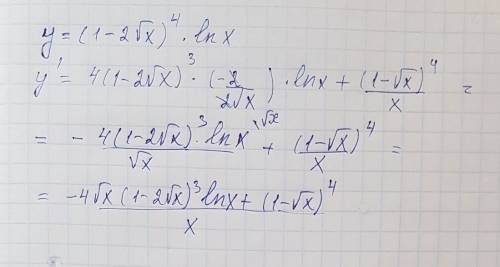 y = (1-2√x)⁴ · ln x
y' = 4(1-2√x)³ · (-2/2√x) · ln x + (1-√x)⁴/x =
= - 4(1-2√x)³ · ln x/√x ^(√x + (1-√x)⁴/x =
= -4√x(1-2√x)³ ln x + (1-√x)⁴/x